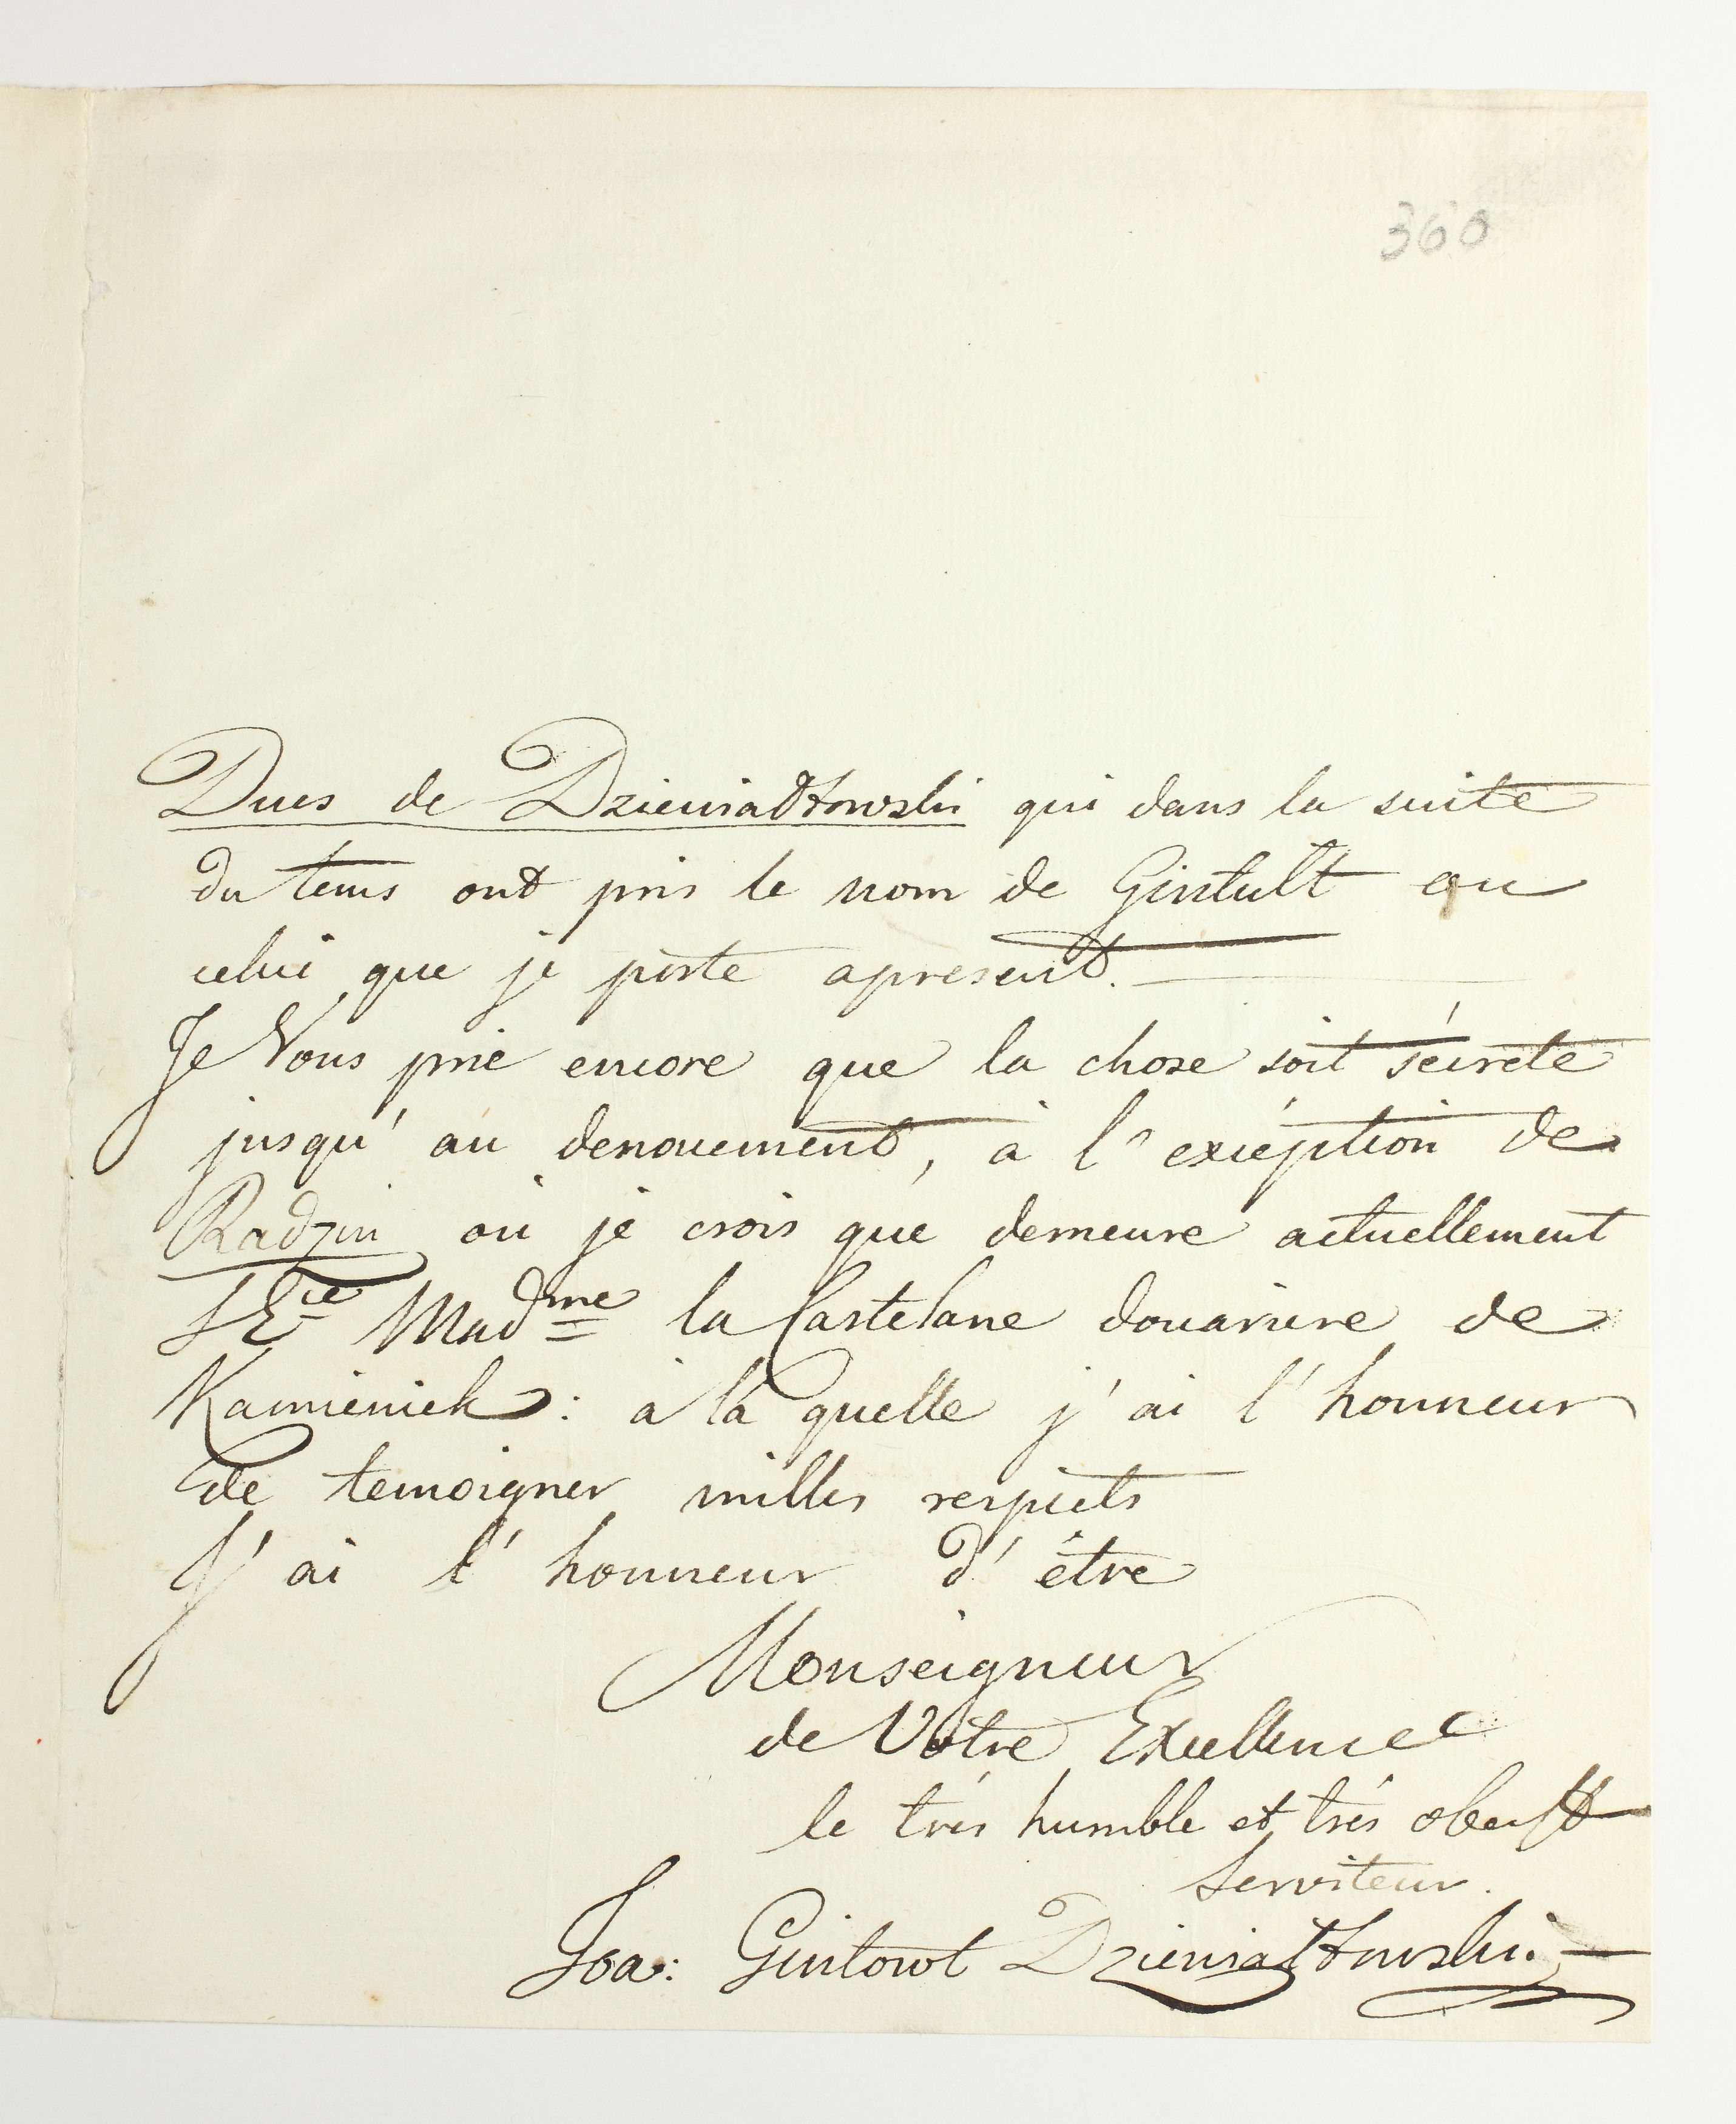 360
Ducs de Dziewiałtowski qui dans la suite
du tems ont pris le nom de Gintult ou
celui que je porte apresent.
Je Vous prie encore que la chose soit sécrete
jusqu' au denouement, à l' exception de
Radzin où je crois que demeure actuellement
S Ecie Madme la Castelane douariere de
Kamieniek: à la quelle j' ai l' honneur
de temoigner milles respects
J' ai l' honneur d' étre
Monseigneur
de Votre Excellence
le trés humble et trés obeisst
Serviteur.
Joa: Gintowt Dziewiałtowski.